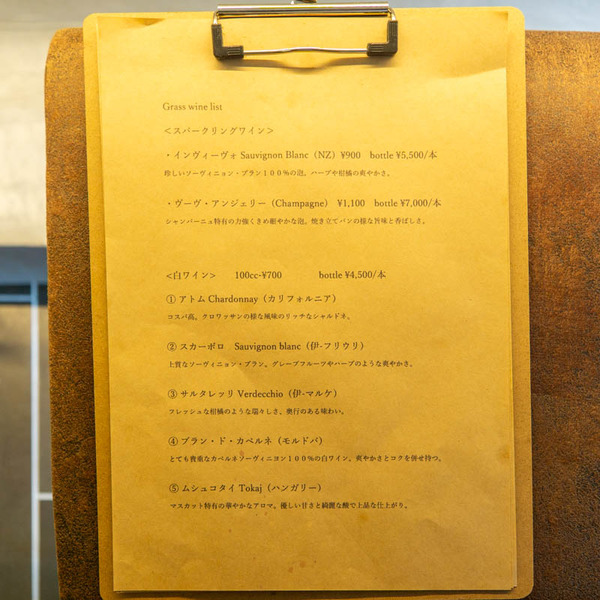 Grass wine list
＜スパークリングワイン＞
・インヴィーヴォ Sauvignon Blanc（NZ）¥900　bottle ¥5,500/本
珍しいソーヴィニョン・ブラン１００％の泡。ハーブや柑橘の爽やかさ。
・ヴーヴ・アンジェリー（Champagne）　¥1,100　bottle ¥7,000/本
シャンパーニュ特有の力強くきめ細やかな泡。焼き立てパンの様な旨味と香ばしさ。
<白ワイン>　　100cc-¥700　　　　bottle ¥4,500/本
① アトム Chardonnay（カリフォルニア）
コスパ高。クロワッサンの様な風味のリッチなシャルドネ。
② スカーボロ　Sauvignon blanc（伊-フリウリ）
上質なソーヴィニョン・ブラン。グレープフルーツやハーブのような爽やかさ。
③ サルタレッリ Verdecchio（伊-マルケ）
フレッシュな柑橘のような瑞々しさ、奥行のある味わい。
④ ブラン・ド・カベルネ（モルドバ）
とても貴重なカベルネソーヴィニヨン１００％の白ワイン。爽やかさとコクを併せ持つ。
⑤ ムシュコタイ Tokaj（ハンガリー）
マスカット特有の華やかなアロマ。優しい甘さと綺麗な酸で上品な仕上がり。